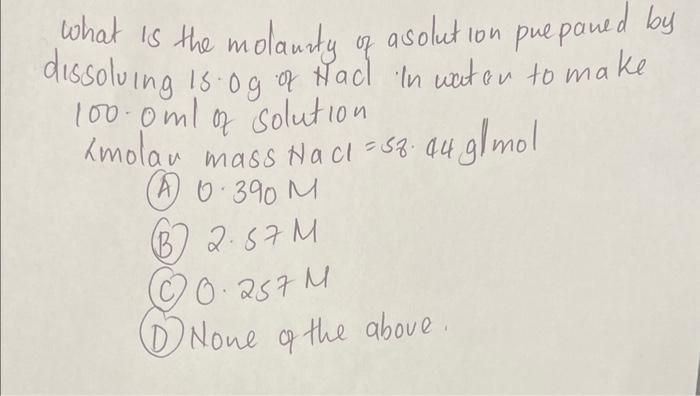 What is the molarity of a solution prepared by
dissolving 15.0g of Nacl in water to make
100.0ml of solution
(molar mass Nacl = 58.44 g/mol
(A) 0.390 M
(B) 2.57 M
(C) 0.257 M
(D) None of the above.